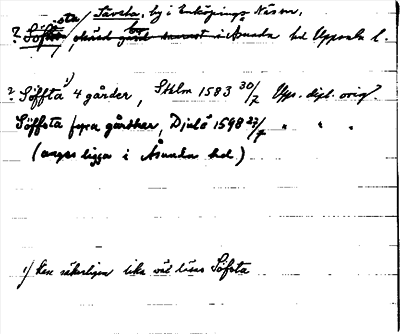 sta/ Tävsta, by i Enköpings Näsn.
? Söffta/, okänd gård i Åsunda hd Uppsala l.
? Söffta 1) 4 gårder, Sthlm 1583 30/7 Upps. dipl. orig.
Söffsta fyra gårdhar, Djulö 1598 27/7 " " "
(anges ligga i Åsunda hd.)
1) Kan säkerligen lika väl läsas Söfsta